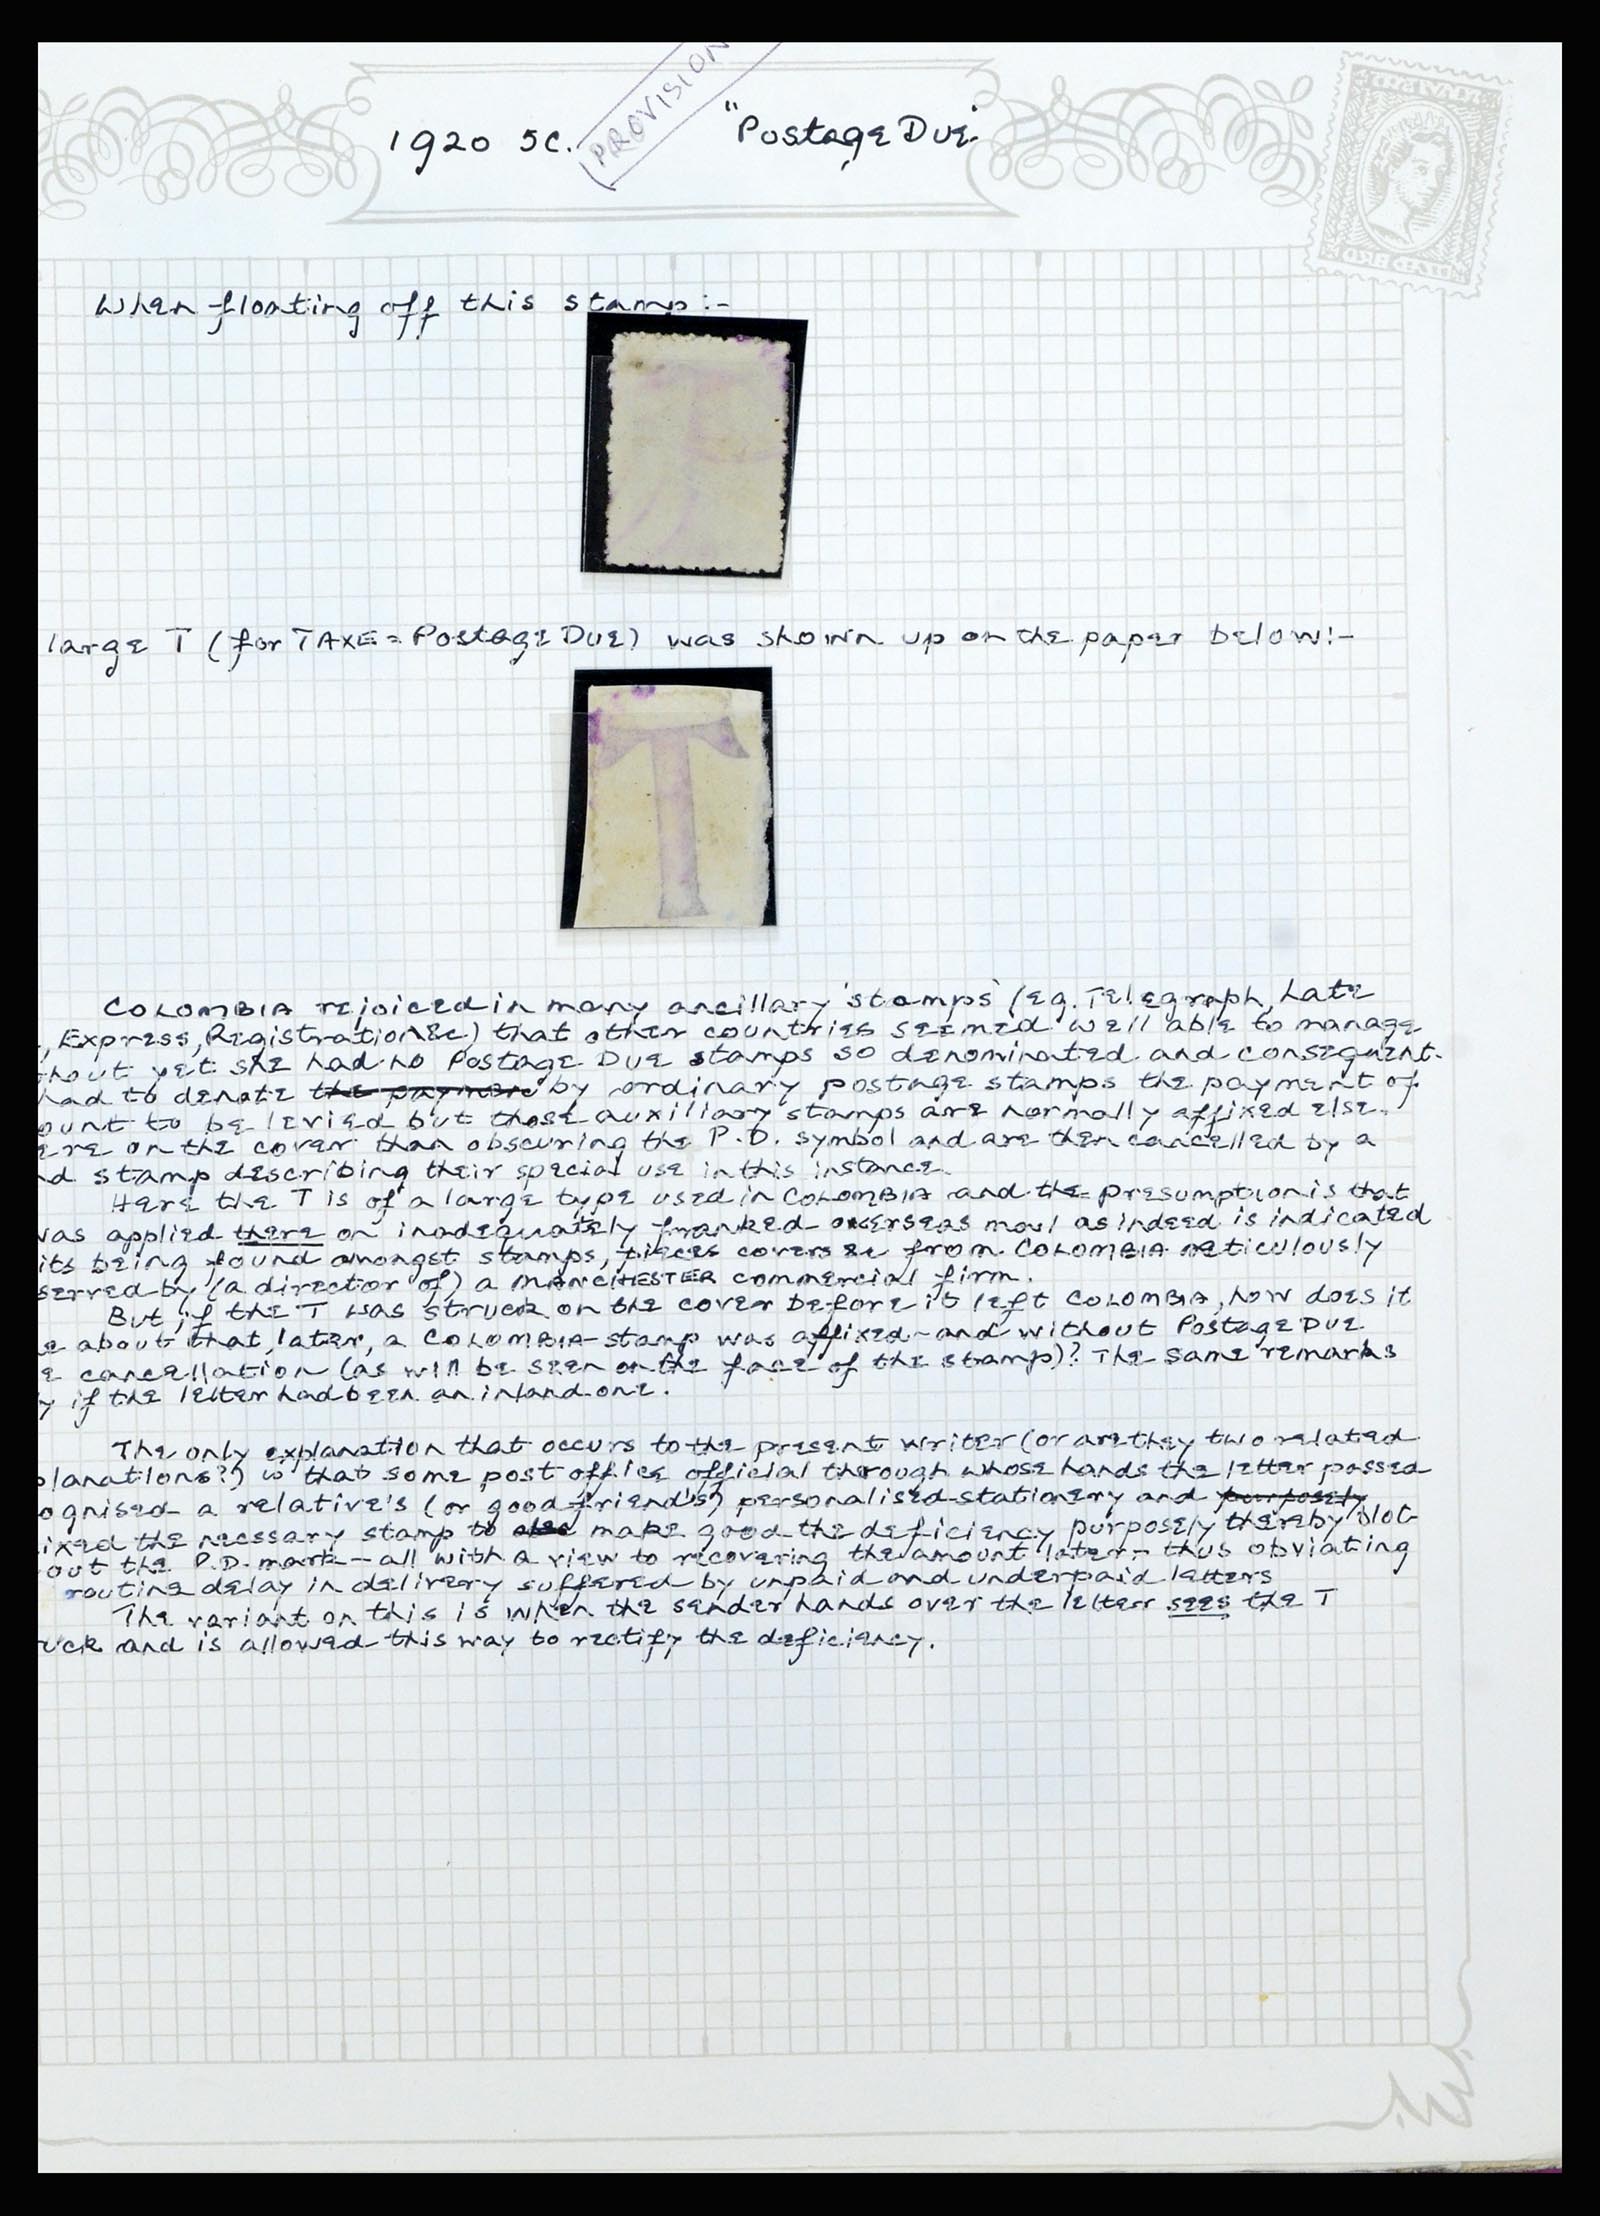 1920 5C. (PROVISION "Postage Due"
When floating off this stamp:-
large T (for TAXE = Postage Due) was shown up on the paper below:-
COLOMBIA rejoiced in many ancillary 'stamps' (eg. Telegraph, Late
, Express, Registration &c) that other countries seemed well able to manage
hout yet she had no Postage Due stamps so denominated and consequent-
had to denote the payment by ordinary postage stamps the payment of
ount to be levied but those auxiliary stamps are normally affixed else-
ere on the cover than obscuring the P.D. symbol and are then cancelled by a
nd stamp describing their special use in this instance.
Here the T is of a large type used in COLOMBIA and the presumption is that
was applied there on inadequately franked overseas mail as indeed is indicated
its being found amongst stamps, pieces covers &c from COLOMBIA meticulously
served by (a director of) a MANCHESTER commercial firm.
But if the T was struck on the cover before it left COLOMBIA, how does it
e about that, later, a COLOMBIA stamp was affixed - and without Postage Due
e cancellation (as will be seen on the face of the stamp)? The same remarks
y if the letter had been an inland one.
The only explanation that occurs to the present writer (or are they two related
planations?) is that some post office official through whose hands the letter passed
ognised a relative's (or good friend's) personalised stationery and purposely
ixed the necssary stamp to make good the deficiency purposely thereby blot-
out the P.D. mark - all with a view to recovering the amount later - thus obviating
routine delay in delivery suffered by unpaid and underpaid letters
The variant on this is when the sender hands over the letter sees the T
uck and is allowed this way to rectify the deficiency.